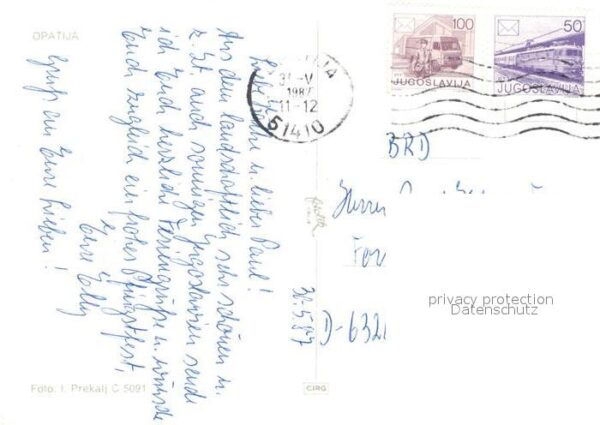 OPATIJA
Liebe u. lieber Paul!
Aus dem landschaftlich sehr schönen u.
z. Zt. auch sonnigen Jugoslawien sende
ich Euch herzliche Feriengrüße u. wünsche
Euch zugleich ein frohes Pfingstfest.
Eure Elly
Gruß an Eure Lieben!
30.5.87
Foto: I. Prekalj C 5091
CIRG
OPATIJA
31-V
1987
11-12
51410
100
JUGOSLAVIJA
50
JUGOSLAVIJA
BRD
Herrn
D-632
privacy protection
Datenschutz